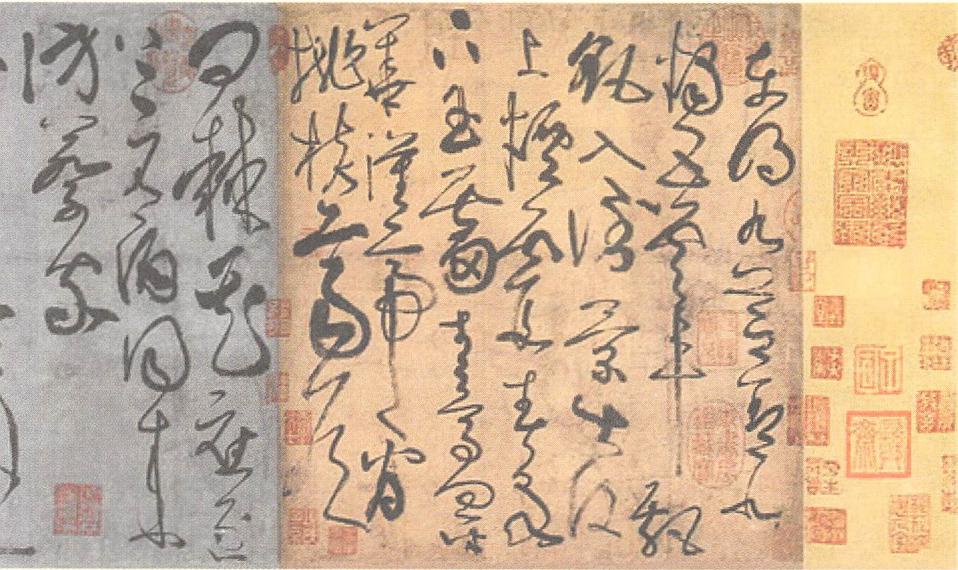 東明九芝蓋北
燭五雲車飄
飖入倒景出沒
上煙霞春泉
下玉霤青鳥向金
華漢帝看
桃核齊侯
問棘花應逐
上元酒同來
訪蔡家